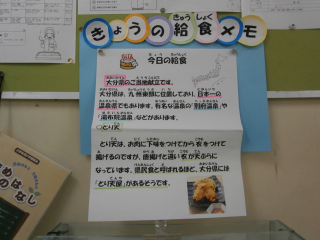 きょうの給食メモ
今日の給食
大分県のご当地献立です。
大分県は、九州東部に位置しており、日本一の
温泉県でもあります。有名な温泉の「別府温泉」や
「湯布院温泉」などがあります。
とり天
とり天は、お肉に下味をつけてから衣をつけて
揚げるのですが、唐揚げと違い衣が天ぷらに
なっています。県民食と呼ばれるほど、大分県には
「とり天屋」があるそうです。